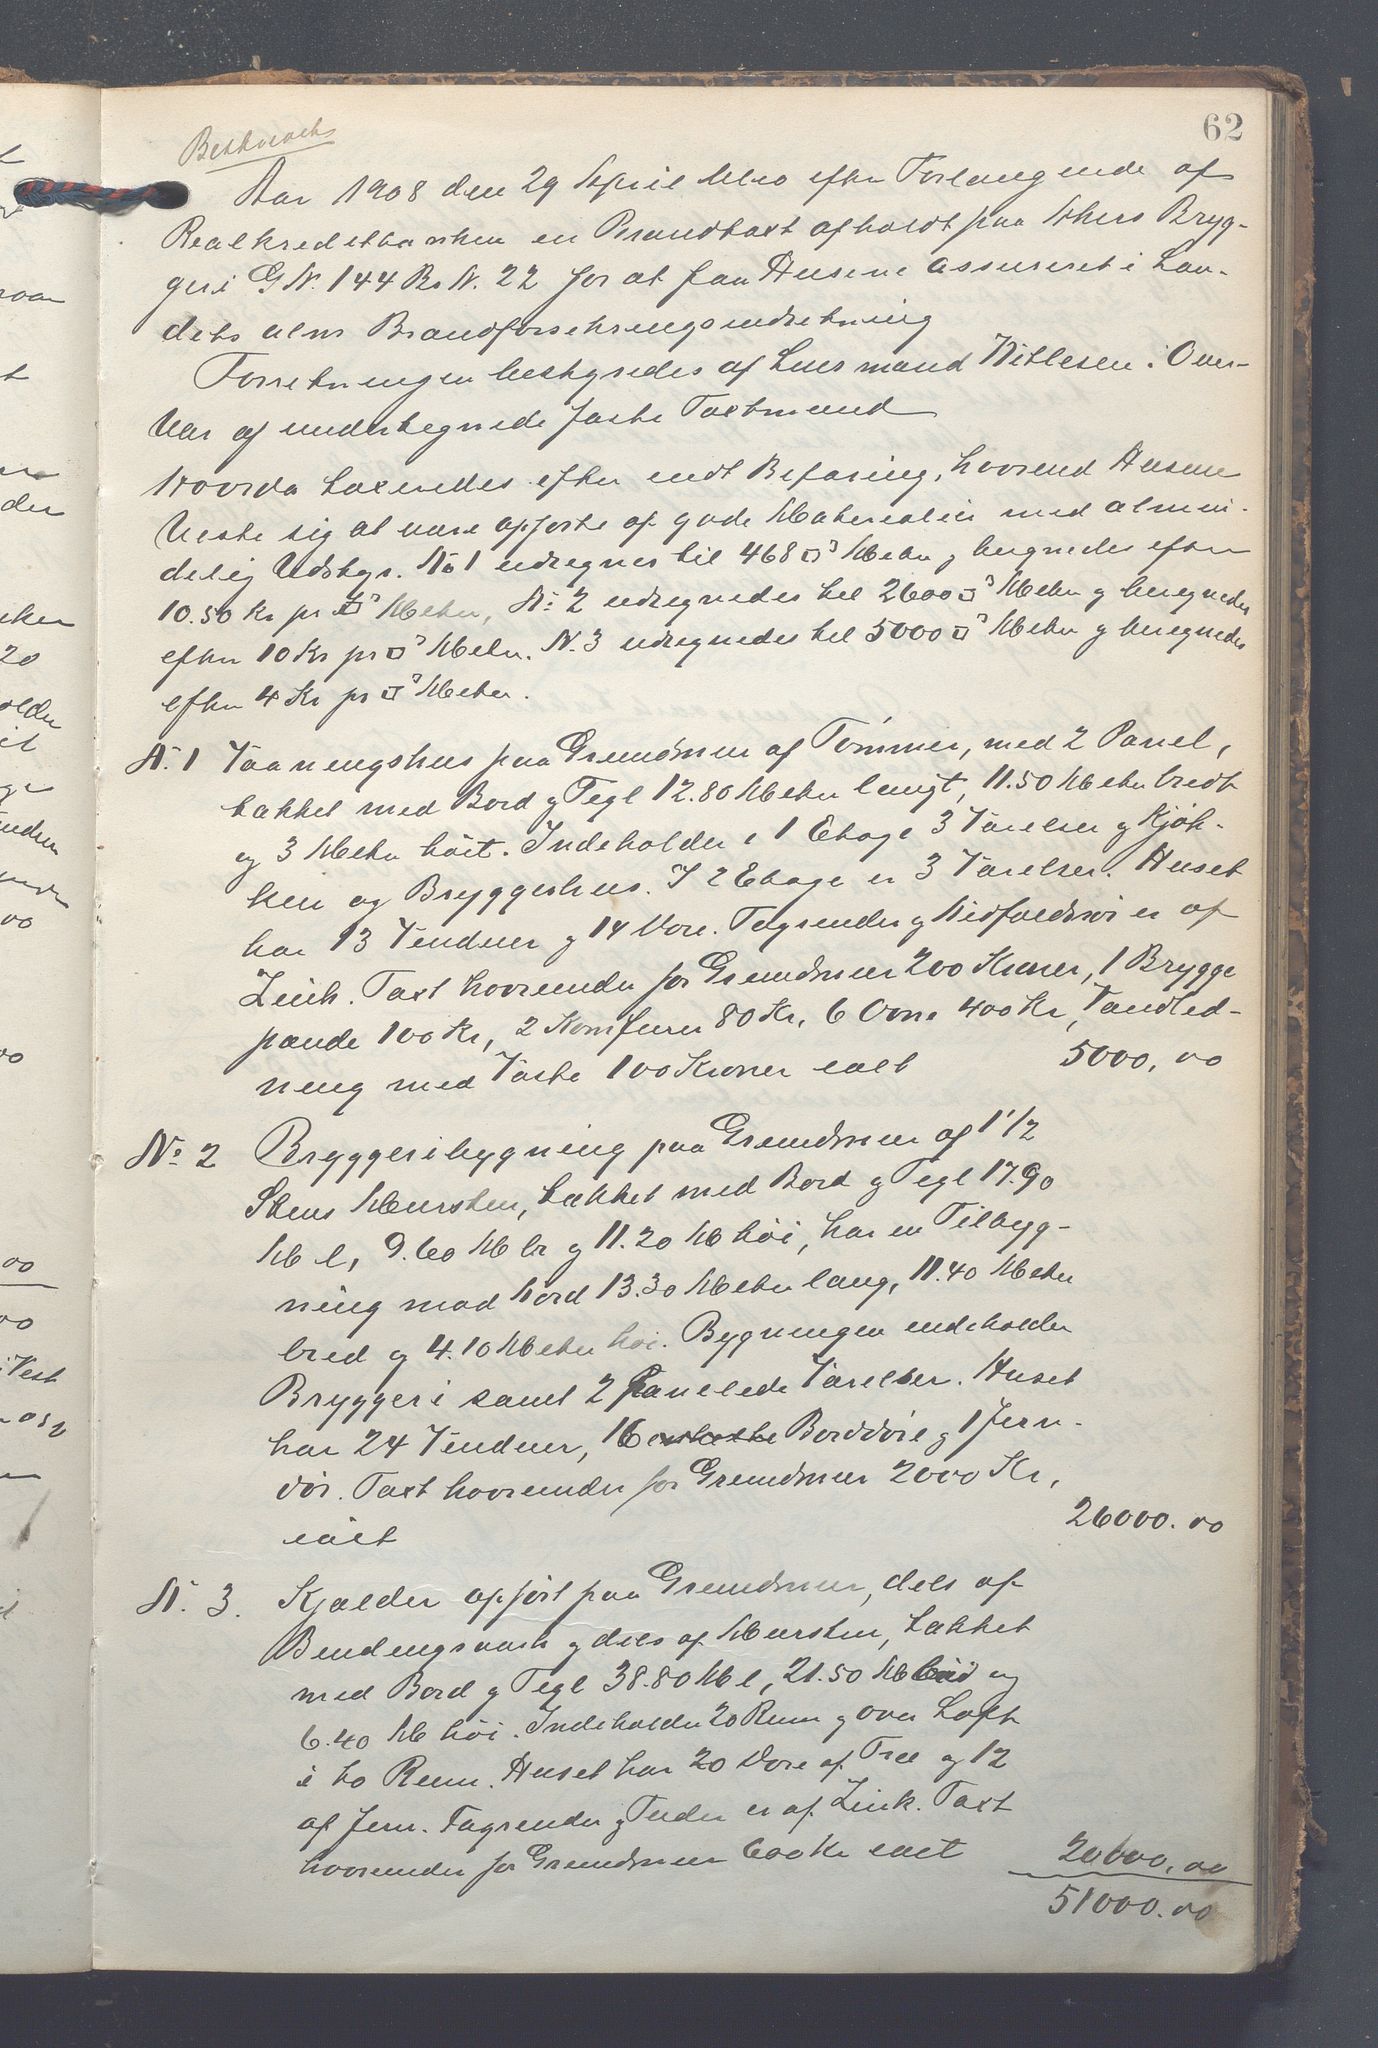 62
Aar 1908 den 29 April blev efter Forlangende af
Realkreditbanken en Brandtaxt afholdt paa Bryg-
geri G N. 144 Br N. 22 for at faa Husene assureret i Lan-
dets alm Brandforsikringsindretning
Forretningen bestyredes af Lensmand i Over-
vær af undertegnede faste Taxtmænd
Hvorda taxeredes efter endt Befaring, hvorved Husene
viste sig at være opførte af gode Materialier med almin-
delig Udstyr. No 1 udregnes til 468 □ Meter og beregnedes efter
10.50 Kr pr □ Meter, No 2 udregnedes til 2600 □ Meter og beregnedes
efter 10 Kr pr □ Meter. N. 3 udregnedes til 5000 □ Meter og beregnedes
efter 4 Kr pr □ Meter.
N. 1 Vaaningshus paa Grundmur af Tømmer, med 2 Panel,
tækket med Bord og Tegl 12.80 Meter langt, 11.50 Meter bredt
og 3 Meter høit. Indeholder i 1 Etage 3 Værelser og Kjøk-
ken og Bryggerhus. I 2 Etage er 3 Værelser. Huset
har 13 Vinduer og 14 Døre. Tagrender og Nedfaldsrør er af
Zink. Taxt hvorunder for Grundmur 200 Kroner, 1 Brygge
pande 100 Kr, 2 Komfurer 80 Kr, 6 Ovne 400 Kr, Vandled-
ning med Vaske 100 Kroner ialt 5000,00
No 2 Bryggeribygning paa Grundmur af 1 1/2
Stens Mursten, tækket med Bord og Tegl 17.90
M l, 9.60 M br og 11.20 M høi, har en Tilbyg-
ning mod Nord 13.30 Meter lang, 11.40 Meter
bred og 4.10 Meter høi. Bygningen indeholder
Bryggeri samt 2 Panelede Værelser. Huset
har 24 Vinduer, 16 Borddøre og 1 Jern-
dør. Taxt hvorunder for Grundmur 2000 Kr,
ialt 26000.00
N. 3. Kjælder opført paa Grundmur, dels af
Bindingsværk og dels af Mursten, tækket
med Bord og Tegl 38.80 M l, 21.50 M bred og
6.40 M høi. Indeholder 20 Rum og over Loft
i to Rum. Huset har 20 Døre af Træ og 12
af Jern. Tagrender og Nedr er af Zink. Taxt
hvorunder for Grundmur 600 Kr ialt 20000,00
51000.00